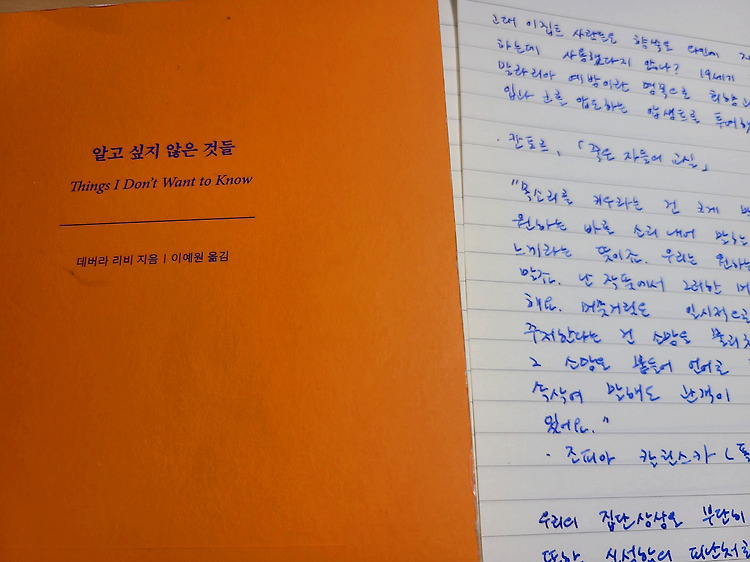 알고 싶지 않은 것들
Things I Don't Want to Know
데버라 리비 지음 | 이예원 옮김
고대 이집트 사람들은 향쑥도
하는데 사용했다지 않나? 19세기
말라리아 예방이란 명목으로
입과 코를 압도하는 압생트를
· 칸토르, 「죽은 자들의 교실」
"목소리를 키우라는 건 크게
원하는 바를 소리 내어 말하는
느끼라는 뜻이죠. 우리는 원하는
말죠. 난 작품에서 그러한
해요. 머뭇거림은 일시적으로
주저한다는 건 소망을 물리치
그 소망을 붙들어 언어로
속삭여 말해도 관객이
있어요."
· 조피아 칼린스카
우리의 집단상상은 부단히
또한 신성함의 피난처를